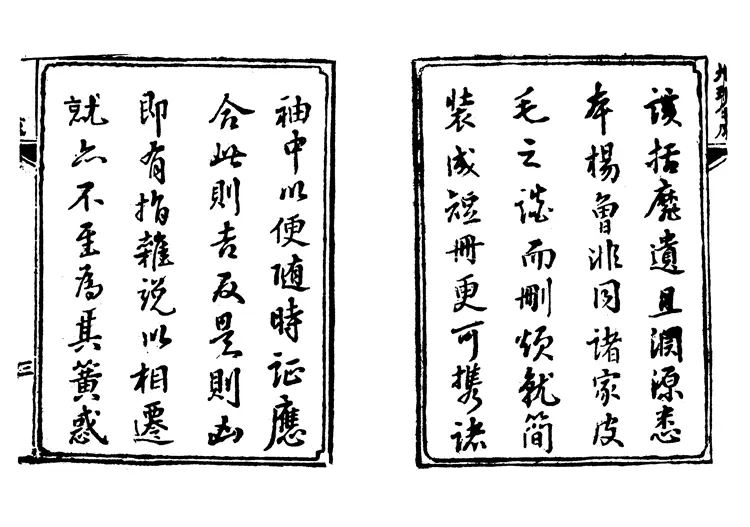 該括靡遺且淵源悉
本楊曾非同諸家皮
毛之談而刪煩就簡
裝成短冊更可携諸
袖中以便随時证應
合此則吉反是則凶
即有指雜说以相遷
就亦不至為其簧惑
三